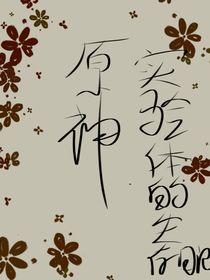 实验体的生存
原神